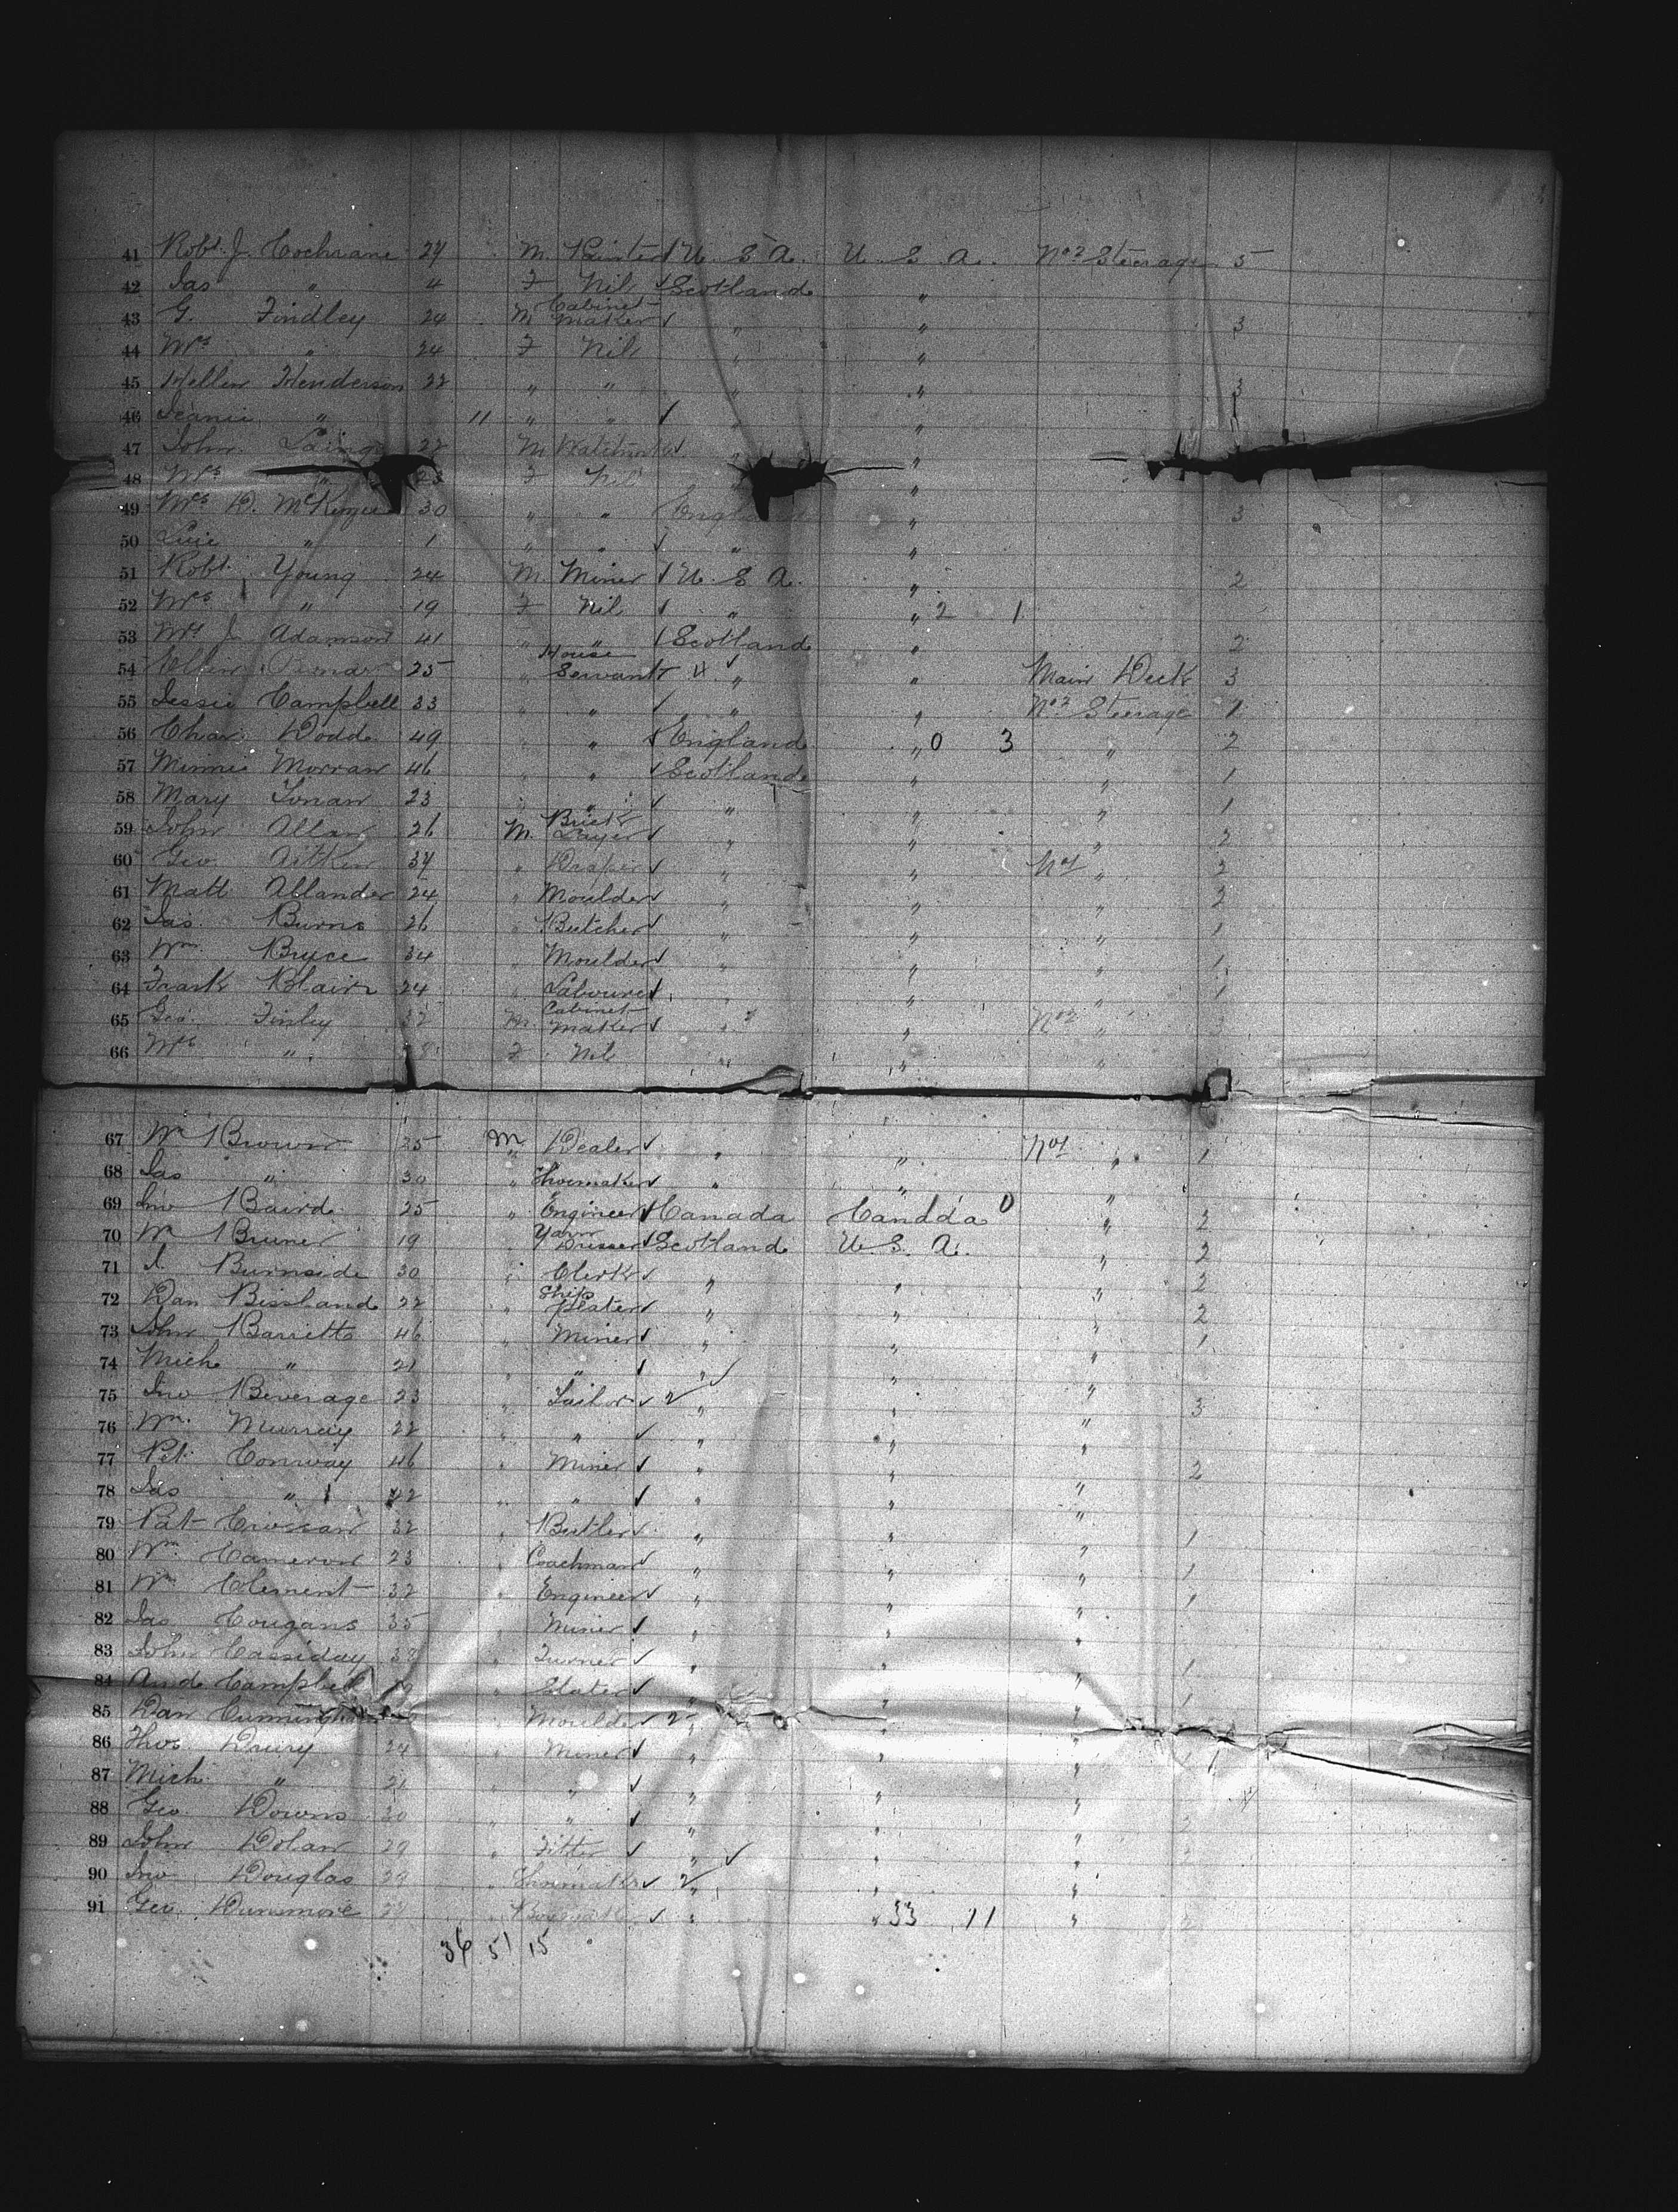 41 Robt. J. Cochrane 24 M. Painter U. S. A. U. S. A. No 2 Steerage 5
42 Jas " 4 F Nil Scotland "
43 G. Findley 24 M Cabinet Maker " " 3
44 Mrs " 24 F Nil " "
45 Hellen Henderson 22 " " " " 3
46 Jeanie " 11 " " " "
47 John Laing 22 M " "
48 Mrs " 23 F Nil "
49 Mrs D. McKenzie 30 " " England " 3
50 " 1 " " " "
51 Robt. Young 24 M. Miner U. S. A. " 2
52 Mrs " 19 F Nil " " 2 1
53 Mrs J. Adamson 41 " " Scotland " 2
54 Ellen 25 " House Servant 4 " " Main Deck 3
55 Jessie Campbell 33 " " " " No 2 Steerage 1
56 Chas. Dodds 49 " " England " 0 3 " 2
57 Minnie Morran 46 " " Scotland " " 1
58 Mary 23 " " " " " 1
59 John Allan 26 M. Brick Layer " " " 2
60 Geo. Aitken 34 " Draper " " No 1 " 2
61 Matt Allander 24 " Moulder " " " 2
62 Jas. Burns 26 " Butcher " " " 1
63 Wm. Bryce 34 " Moulder " " " 1
64 Frank Blair 24 " Labourer " " " 1
65 Geo. Finley 32 M. Cabinet Maker " " No 2 "
66 Mrs " F Nil " " "
67 Wm Brown 25 M " Dealer " " No 1 " 1
68 Jas " 30 " Shoemaker " " "
69 Jno Baird 25 " Engineer Canada Canada 0 " 2
70 Wm Bruner 19 " Yarn Dresser Scotland U. S. A. " 2
71 J. Burnside 30 " Clerk " " " 2
72 Dan Bissland 22 " Ship plater " " " 2
73 John Barrett 46 " Miner " " " 1
74 Mich " 21 " " " " "
75 Jno Beverage 23 " Tailor 2 " " " 3
76 Wm. Murray 22 " " " " "
77 Pet. Conway 46 " Miner " " " 2
78 Jas " 22 " " " " "
79 Pat Crossan 32 " Butler " " " 1
80 Wm. Cameron 23 " Coachman " " " 1
81 Wm Clement 32 " Engineer " " " 1
82 Jas Cougans 35 " Miner " " "
83 John Cassiday 38 " Turner " " " 1
84 And Campbell " Slater " " " 1
85 Dan Cunningham " Moulder 2 " " "
86 Thos Drury 24 " Miner " " " 1
87 Mich " 21 " " " " "
88 Geo. Downs 20 " " " " " 2
89 John Dolan 29 " Fitter " " " 2
90 Jno Douglas 39 " Shoemaker 2 " " "
91 Geo. Dunsmore " " " 33 11 " 2
36 51 15